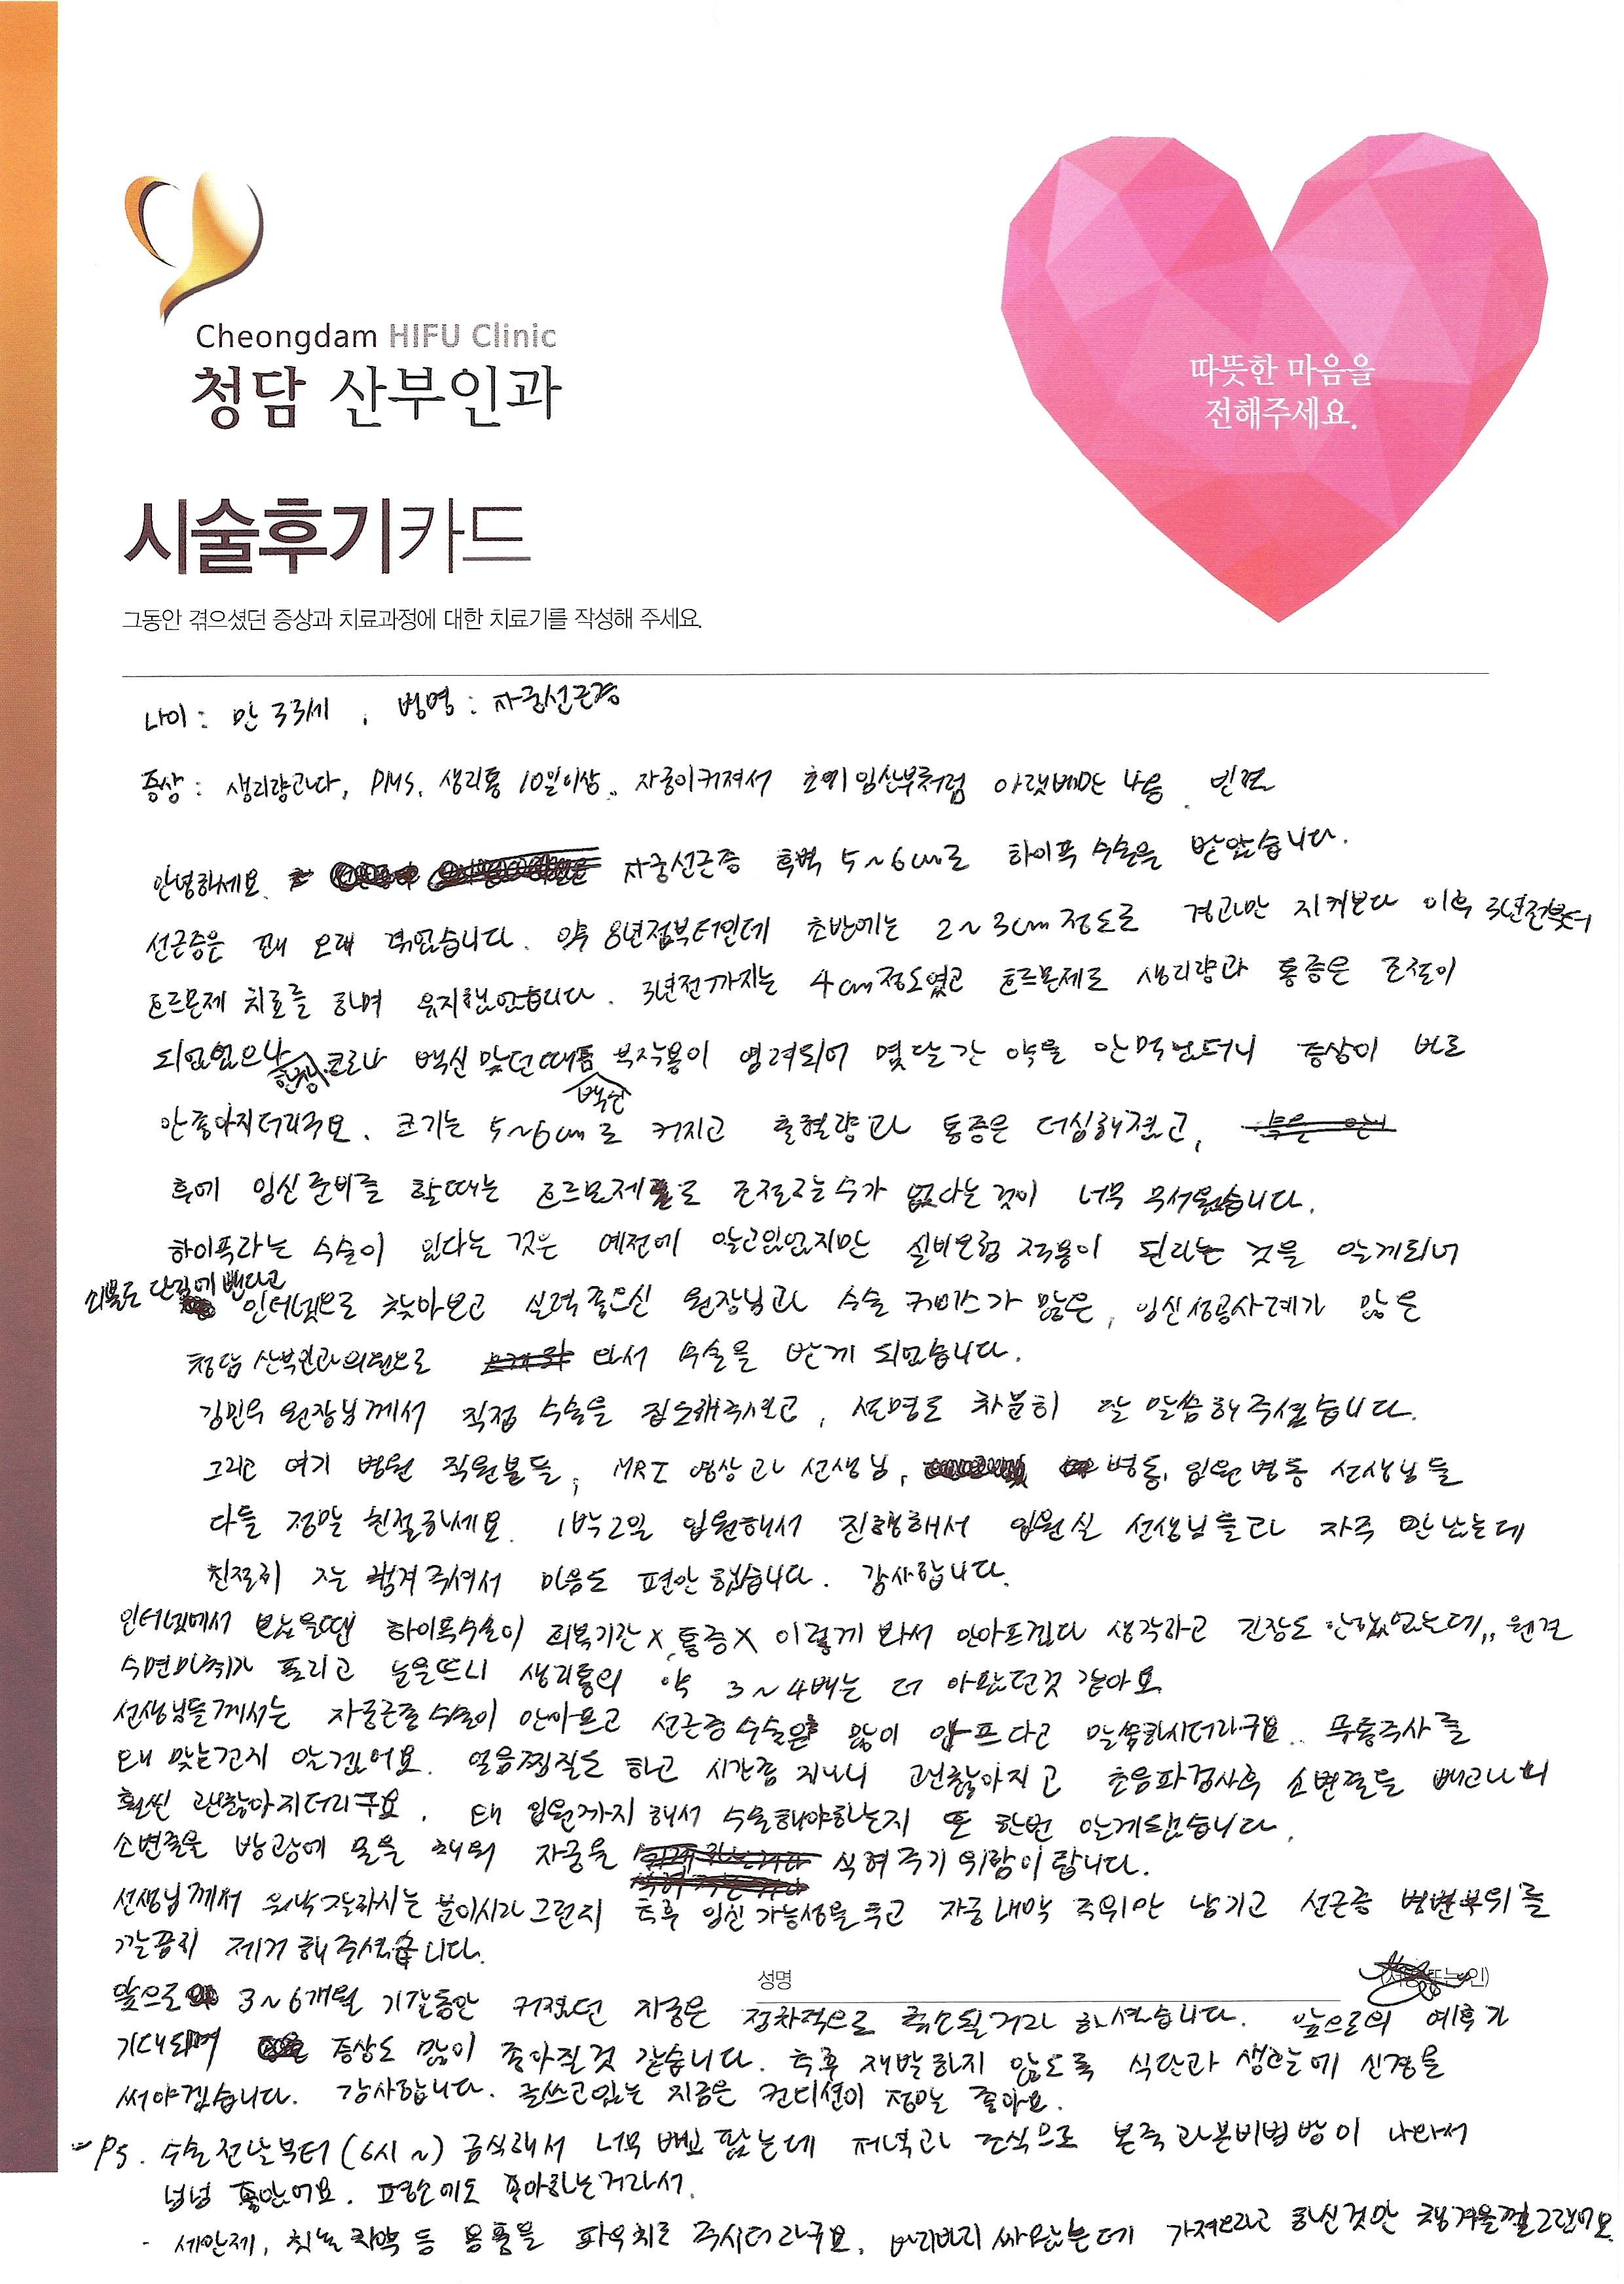 Cheongdam HIFU Clinic
청담 산부인과
따뜻한 마음을
전해주세요.
시술후기카드
그동안 겪으셨던 증상과 치료과정에 대한 치료기를 작성해 주세요.
나이: 만 33세, 병명: 자궁선근증
증상: 생리량과다, PMS, 생리통 10일이상, 자궁이커져서 초기 임산부처럼 아랫배만 나옴, 빈혈
안녕하세요. 자궁선근증 후벽 5~6cm로 하이푸 수술을 받았습니다.
선근증은 꽤 오래 겪었습니다. 약 8년점부터인데 초반에는 2~3cm정도로 경과만 지켜보다 이후 3년전붓터
호르몬제 치료를 하며 유지했었습니다. 3년전까지는 4cm정도였고 호르몬제로 생리량과 통증은 조절이
되었었으나 한창 코로나 백신 맞던때쯤 백신 부작용이 염려되어 몇달간 약을 안먹었더니 증상이 바로
안좋아지더라구요. 크기는 5~6cm로 커지고 출혈량과 통증은 더심해졌고,
후에 임신준비를 할때는 호르모제로 조절하는수가 없다는 것이 너무 무서웠습니다.
하이푸라는 수술이 있다는 것은 예전에 알고있었지만 실비보험 적용이 된다는 것을 알게되어
쇠뿔도 단김에 뺀다고 인터넷으로 찾아보고 실력좋으신 원장님과 수술 케이스가 많은, 임신성공사례가 많은
청담 산부인과의원으로 와서 수술을 받게 되었습니다.
김민우 원장님께서 직접 수술을 집도해주시고, 설명도 차분히 잘 말씀해주셨습니다.
그리고 여기 병원 직원분들, MRI 영상과 선생님, 병동, 입원병동 선생님들
다들 정말 친절하세요. 1박2일 입원해서 진행해서 입원실 선생님들과 자주 만났는데
친절히 잘 챙겨주셔서 마음도 편안했습니다. 감사합니다.
인터넷에서 보았을땐 하이푸수술이 회복기간X, 통증X 이렇게 봐서 안아프겠다 생각하고 긴장도 안했었는데,, 웬걸
수면마취가 풀리고 눈을뜨니 생리통의 약 3~4배는 더 아팠던것 같아요
선생님들께서는 자궁근종수술이 안아프고 선근증수술은 많이 아프다고 말씀하시더라구요.. 무통주사를
왜 맞는건지 알겠어요. 얼음찜질도 하고 시간좀 지나니 괜찮아지고 초음파검사후 소변줄을 빼고나니
훨씬 괜찮아지더라구요. 왜 입원까지 해서 수술해야하는지 또 한번 알게됐습니다.
소변줄을 방광에 물을 채워 자궁을 식혀주기 위함이랍니다.
선생님께서 워낙 잘하시는 분이시라 그런지 추후 임신가능성을 두고 자궁내막 주위만 남기고 선근증 병변부위를
깔끔히 제거해주셨습니다.
성명
앞으로 3~6개월 기간동안 커졌던 자궁은 점차적으로 축소될거라 하셨습니다. 앞으로의 예후가
기대되며 증상도 많이 좋아질것 같습니다. 추후 재발하지 않도록 식단과 생활에 신경을
써야겠습니다. 감사합니다. 글쓰고있는 지금은 컨디션이 정말 좋아요.
PS. 수술전날부터 (6시~) 금식해서 너무 배고팠는데 저녁과 조식으로 본죽과본비빔밥이 나와서
넘넘 좋았어요. 평소에도 좋아하는거라서.
- 세안제, 칫솔 치약 등 용품을 파우치로 주시더라구요. 바리바리 싸왔는데 가져오라고 하신것만 챙겨올껄그랬어요